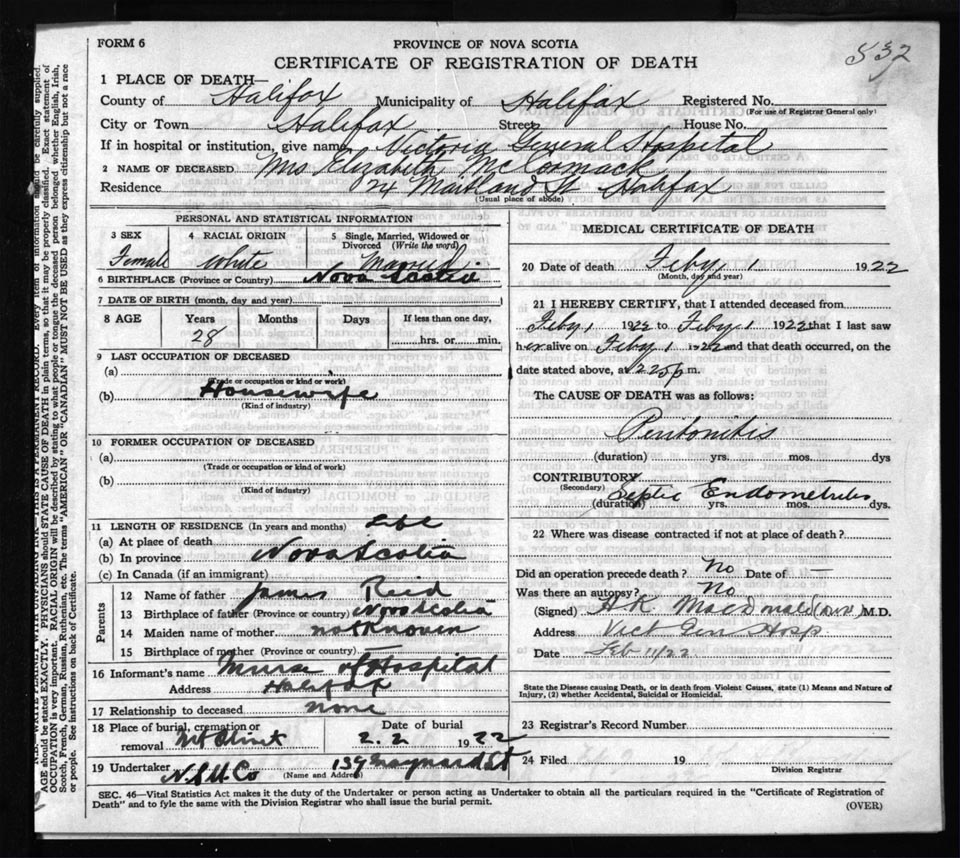 FORM 6
PROVINCE OF NOVA SCOTIA
532
CERTIFICATE OF REGISTRATION OF DEATH
1 PLACE OF DEATH—
County of Halifax Municipality of Halifax Registered No.
(For use of Registrar General only)
City or Town Halifax Street House No.
If in hospital or institution, give name, Victoria General Hospital
2 NAME OF DECEASED Mrs Elizabeth McCormack
Residence 24 Maitland St Halifax
(Usual place of abode)
PERSONAL AND STATISTICAL INFORMATION
3 SEX 4 RACIAL ORIGIN 5 Single, Married, Widowed or Divorced (Write the word)
Female White Married
6 BIRTHPLACE (Province or Country) Nova Scotia
7 DATE OF BIRTH (month, day and year)
8 AGE Years Months Days If less than one day,
28 hrs. or min.
9 LAST OCCUPATION OF DECEASED
(a)
(Trade or occupation or kind of work)
(b) Housewife
(Kind of industry)
10 FORMER OCCUPATION OF DECEASED
(a)
(Trade or occupation or kind of work)
(b)
(Kind of industry)
11 LENGTH OF RESIDENCE (In years and months) Life
(a) At place of death
(b) In province Nova Scotia
(c) In Canada (if an immigrant)
Parents
12 Name of father James Reid
13 Birthplace of father (Province or country) Nova Scotia
14 Maiden name of mother not Known
15 Birthplace of mother (Province or country)
16 Informant's name Nurse of Hospital
Address Halifax
17 Relationship to deceased none
18 Place of burial, cremation or removal Date of burial
Mt Olivet 2. 2 1922
19 Undertaker N.S.U.Co 139 Maynard St
(Name and Address)
MEDICAL CERTIFICATE OF DEATH
20 Date of death Feby 1 1922
(Month, day and year)
21 I HEREBY CERTIFY, that I attended deceased from
Feby 1 1922 to Feby 1 1922 that I last saw
her alive on Feby 1 1922 and that death occurred, on the
date stated above, at 2.25 p m.
The CAUSE OF DEATH was as follows:
Peritonitis
(duration) yrs. mos. dys
CONTRIBUTORY
(Secondary) Septic Endometritis
(duration) yrs. mos. dys.
22 Where was disease contracted if not at place of death?
Did an operation precede death? No Date of —
Was there an autopsy? No
(Signed) H K MacDonald M.D.
Address Vict Gen Hosp.
Date Feb 1/22
State the Disease causing Death, or in death from Violent Causes, state (1) Means and Nature of
Injury, (2) whether Accidental, Suicidal or Homicidal.
23 Registrar's Record Number
24 Filed 19
Division Registrar
SEC. 46—Vital Statistics Act makes it the duty of the Undertaker or person acting as Undertaker to obtain all the particulars required in the "Certificate of Registration of
Death" and to fyle the same with the Division Registrar who shall issue the burial permit.
(OVER)
N.B. WRITE PLAINLY WITH UNFADING INK—THIS IS A PERMANENT RECORD. Every item of information should be carefully supplied.
AGE should be stated EXACTLY. PHYSICIANS should STATE CAUSE OF DEATH in plain terms, so that it may be properly classified. Exact statement of
OCCUPATION is very important. RACIAL ORIGIN will be described by stating to what people or tongue the deceased person belonged whether English, Irish,
Scotch, French, German, Russian, Ruthenian, etc. The terms "AMERICAN" OR "CANADIAN" MUST NOT BE USED as they express citizenship but not a race
or people. See instructions on back of Certificate.